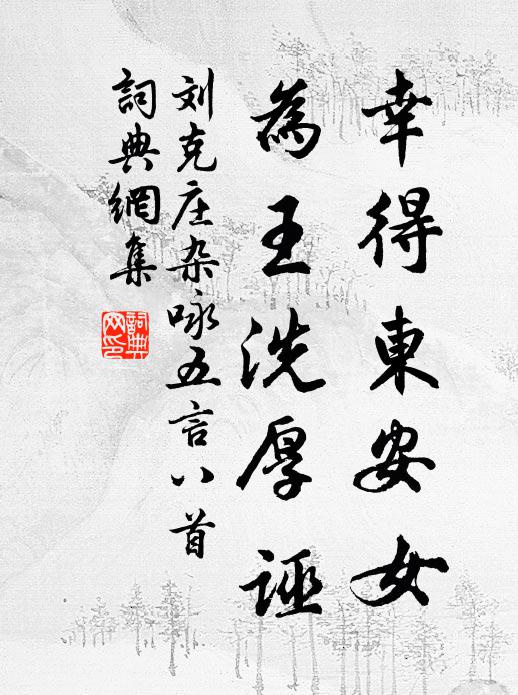 幸得東安女
為王洗厚誣
刘克庄杂咏五言八首
詞典網集
詞典
网印